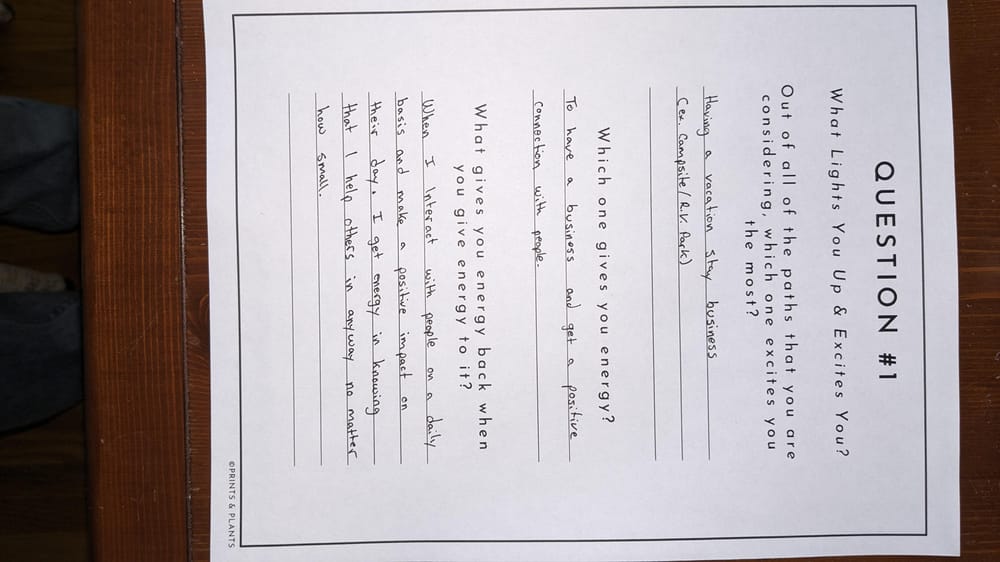 QUESTION #1
What Lights You Up & Excites You?
Out of all of the paths that you are
considering, which one excites you
the most?
Having a vacation stay business
(ex. Campsite/R.V. Park)
Which one gives you energy?
To have a business and get a positive
connection with people.
What gives you energy back when
you give energy to it?
When I Interact with people on a daily
basis and make a positive impact on
their day. I get energy in knowing
that I help others in anyway no matter
how small.
©PRINTS & PLANTS